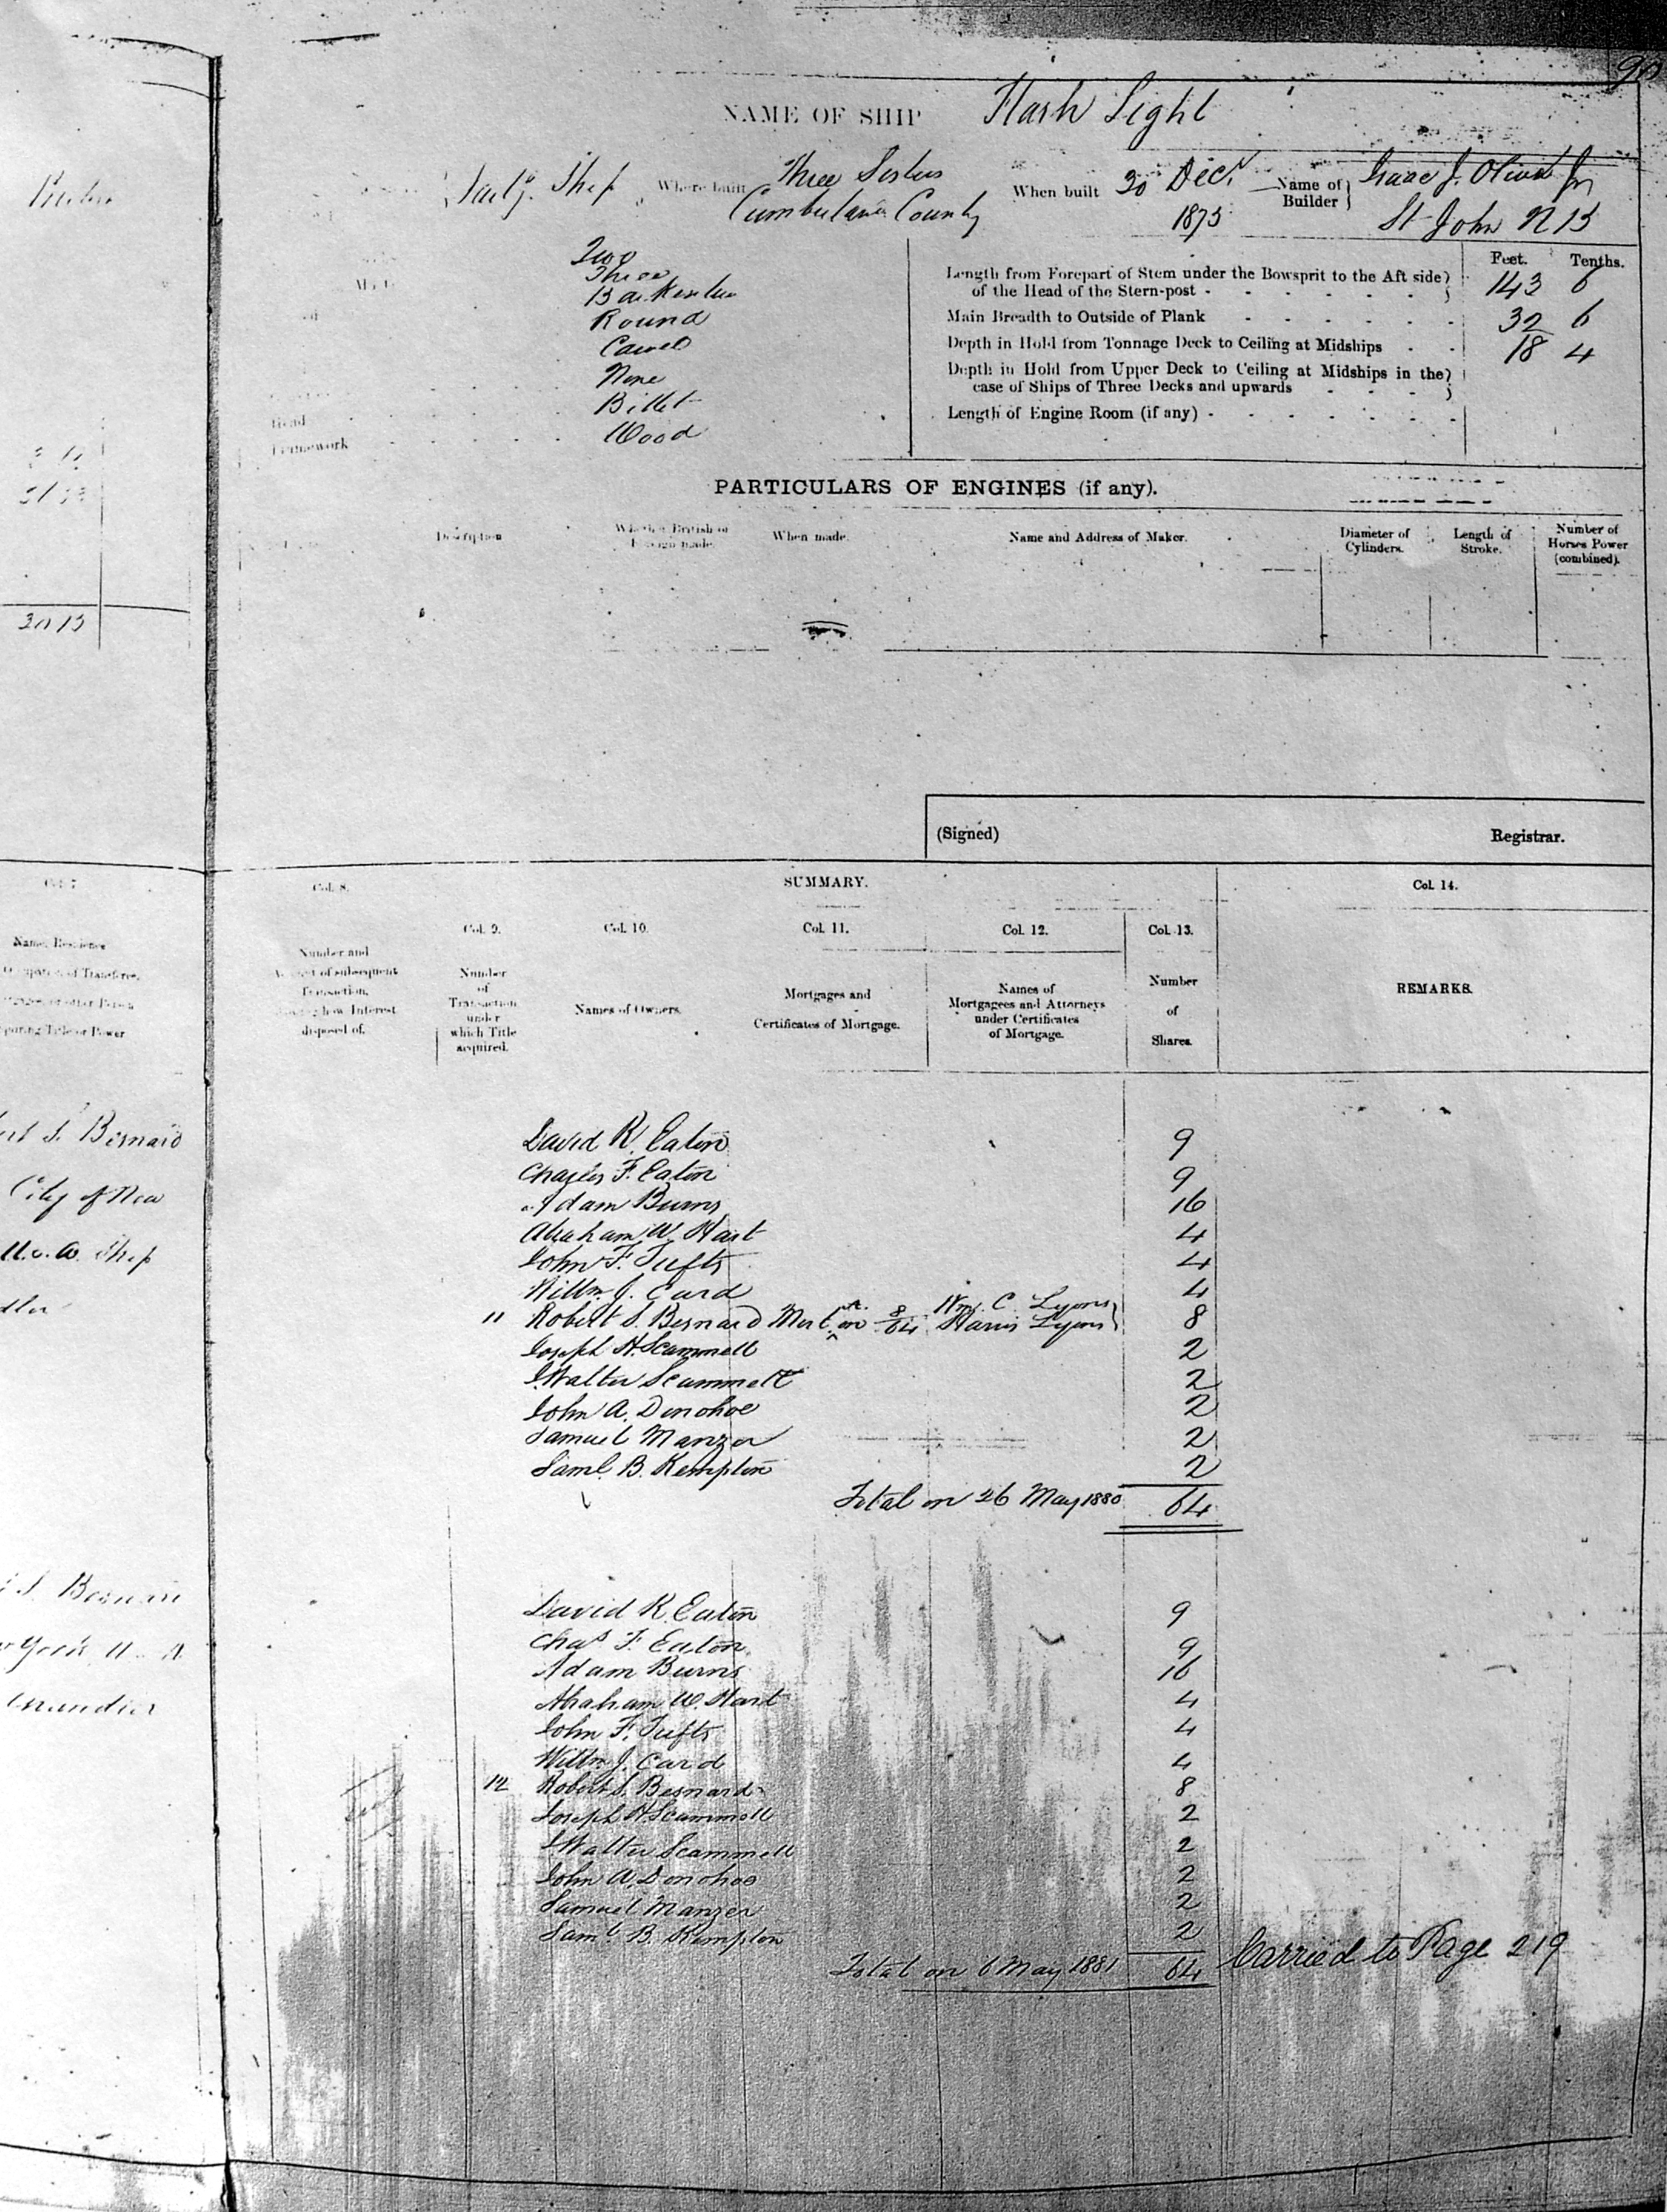 90
NAME OF SHIP Flash Light
Sailg. Ship Where built Three Sisters Cumberland County When built 30 Decr 1875 Name of Builder Isaac J. Olive Jr St John N B
Two
Three
Barkentine
Round
Carvel
None
Head Billet
Framework Wood
Feet. Tenths.
Length from Forepart of Stem under the Bowsprit to the Aft side of the Head of the Stern-post 143 6
Main Breadth to Outside of Plank 32 6
Depth in Hold from Tonnage Deck to Ceiling at Midships 18 4
Depth in Hold from Upper Deck to Ceiling at Midships in the case of Ships of Three Decks and upwards
Length of Engine Room (if any)
PARTICULARS OF ENGINES (if any).
Description Whether British or Foreign made. When made. Name and Address of Maker. Diameter of Cylinders. Length of Stroke. Number of Horses Power (combined).
(Signed) Registrar.
Col. 7 Col. 8. SUMMARY. Col. 14.
Col. 9. Col. 10. Col. 11. Col. 12. Col. 13.
Name, Residence
Occupation of Transferee,
Mortgagee, or other Person
acquiring Title or Power
Number and
Account of subsequent
Transaction,
showing how Interest
disposed of.
Number
of
Transaction
under
which Title
acquired.
Names of Owners.
Mortgages and
Certificates of Mortgage.
Names of
Mortgagees and Attorneys
under Certificates
of Mortgage.
Number
of
Shares.
REMARKS.
S. Besnard
City of New
U.S.A. Ship
David R. Eaton 9
Charles F. Eaton 9
Adam Burns 16
Abraham W. Hart 4
John F. Tufts 4
Willm. J. Card 4
Wm. C. Lyons
11 Robert S. Besnard Mort A. on 8/64 Harris Lyons 8
Joseph H. Scammell 2
J. Walter Scammell 2
John A. Donohoe 2
Samuel Manzer 2
Saml. B. Kempton 2
Total on 26 May 1880 64
S. Besnard
York U.S.A
Chandler
David R. Eaton 9
Chas F. Eaton 9
Adam Burns 16
Abraham W. Hart 4
John F. Tufts 4
Willm. J. Card 4
12 Robert S. Besnard 8
Joseph H. Scammell 2
J. Walter Scammell 2
John A. Donohoe 2
Samuel Manzer 2
Saml. B. Kempton 2
Total on 6 May 1881 64 Carried to Page 219